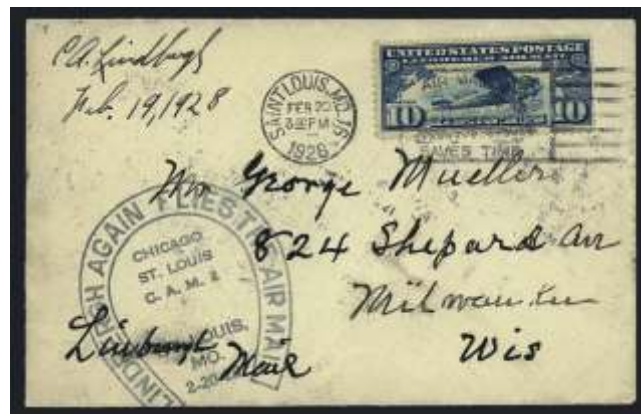 C.A. Lindbergh
Feb. 19, 1928
SAINT LOUIS, MO. 16
FEB 20
3 30 PM
1928
UNITED STATES POSTAGE
AIR MAIL
10 10
SAVES TIME
Mr George Mueller
824 Shepard Av
Milwaukee
Wis
LINDBERGH AGAIN FLIES THE AIR MAIL
CHICAGO
ST. LOUIS
C. A. M. 2
ST. LOUIS,
MO.
2-20-
Linburgh Mail